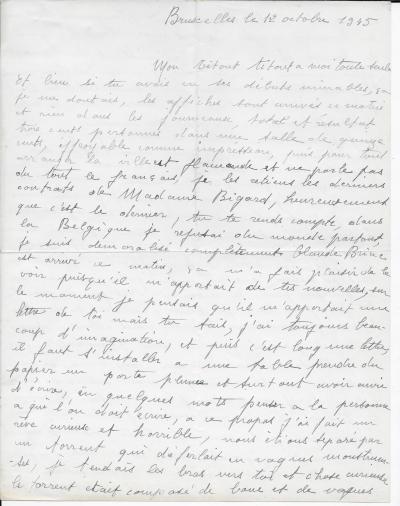 Bruxelles le 12 octobre 1945
Mon titout titout a moi toute seule
Et bien si tu avais vu ses débuts minables,
je me doutais, les affiches sont arrivés ce matin
et rien dans les journeaux total et résultat
trois cents personnes dans une salle de quinze
cents, effroyable comme impression, puis pour tout
arranger la ville est flamande et ne parle pas
du tout le français, je les retiens les derniers
contrats de Madame Bigard, heureusement
que c'est le dernier, tu te rends compte, dans
la Belgique je refusai du monde partout,
je suis démoralisé complètement. Claude
est arrivé ce matin, ça m'a fais plaisir de la
voir puisqu'il m'apportait de tes nouvelles, sur
le moment je pensais qu'il m'apportait une
lettre de toi mais tu sais, j'ai toujours beau-
coup d'imagination, et puis c'est long une lettre,
il faut s'installer a une table prendre du
papier un porte plume et surtout avoir envie
d'écrire, en quelques mots penser a la personne
a qui l'on doit écrire, a ce propos j'ai fait un
rêve curieux et horrible, nous étions séparé par
un torrent qui déferlait en vagues monstrueu-
-ses, je tendais les bras vers toi et chose curieuse
le torrent était composé de boue et de vagues